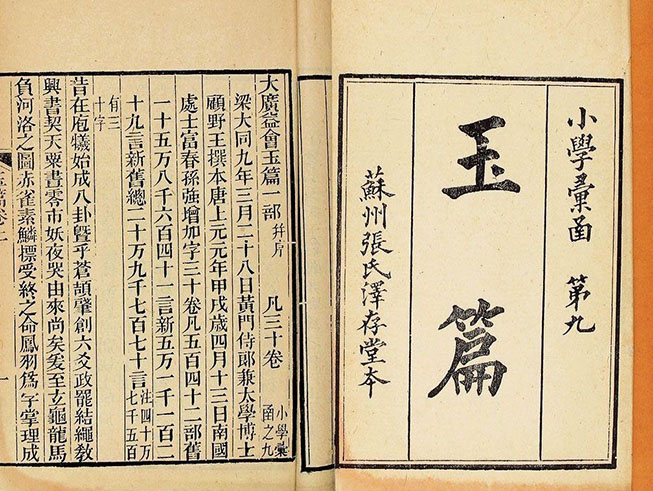 小學彙函 第九
玉篇
蘇州張氏澤存堂本
大廣益會玉篇一部 凡三十卷 小學彙函之九
梁大同九年三月二十八日黃門侍郎兼太學博士
顧野王撰本唐上元元年甲戌歲四月十三日南國
處士富春孫強增加字三十卷凡五百四十二部舊
一十五万八千六百四十一言新五万一千一百二
十九言新舊總二十万九千七百七十言 注四十万七千五百
有三十字
昔在庖犧始成八卦暨乎蒼頡肇創六爻政罷結繩教
興書契天粟晝零市妖夜哭由來尚矣爰至玄龜龍馬
負河洛之圖赤雀素鱗標受終之命鳳羽爲字掌理成
一